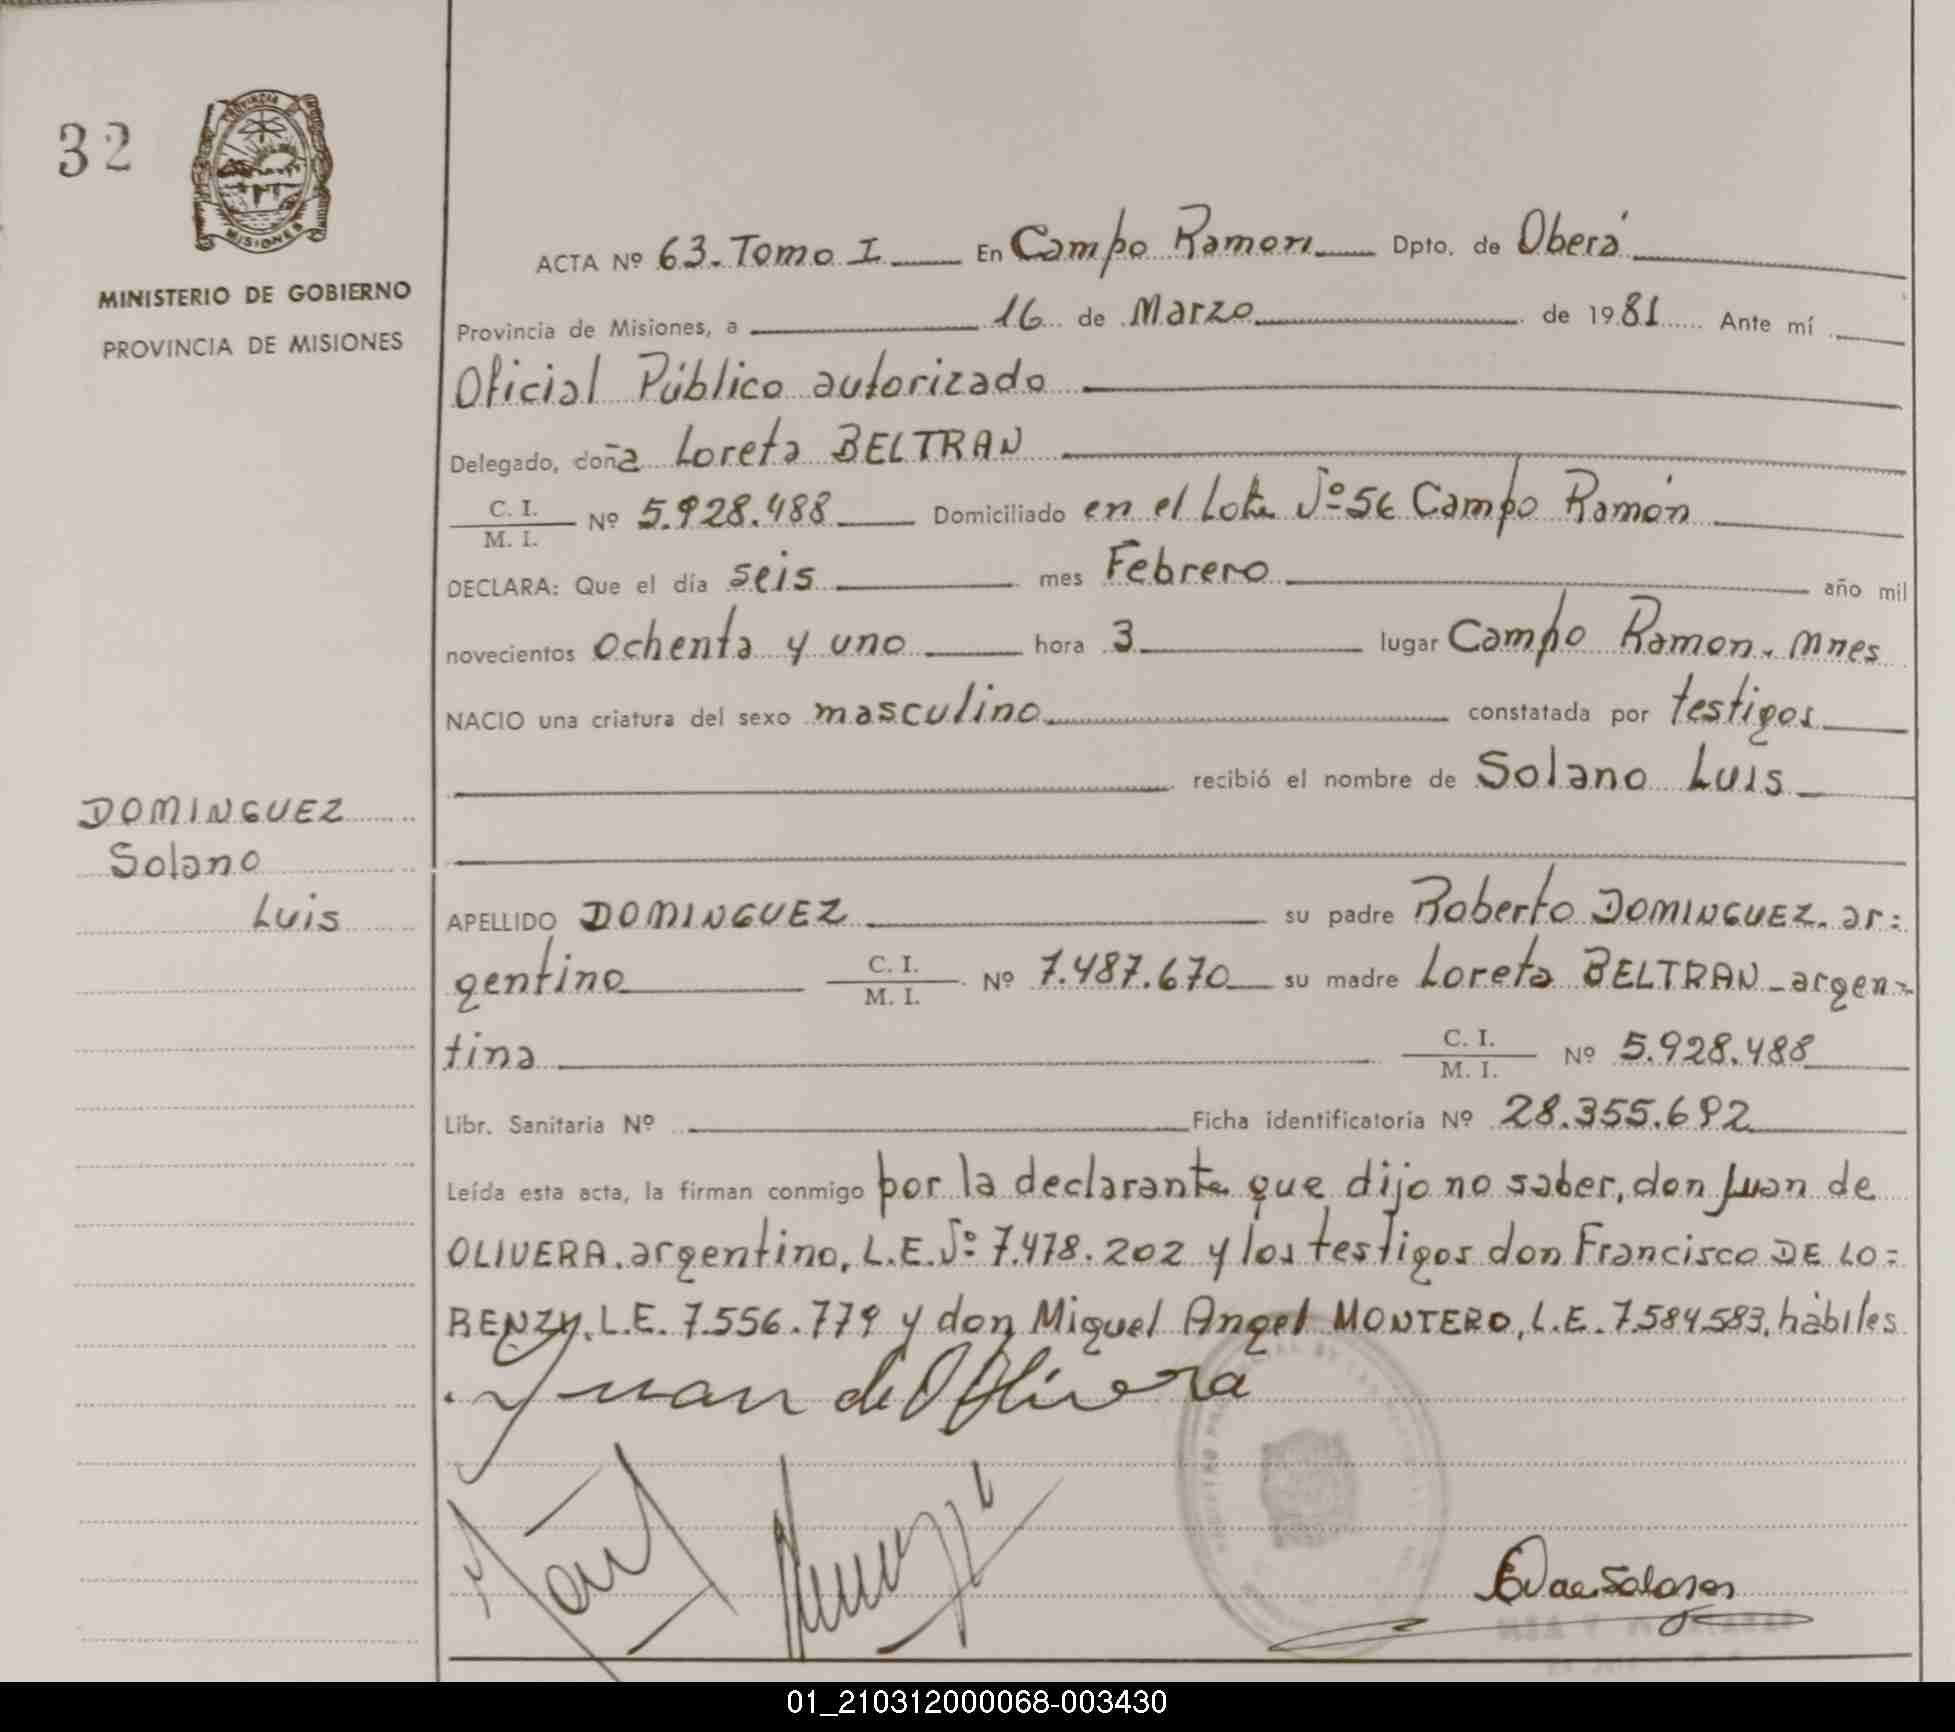 32
PROVINCIA
MISIONES
MINISTERIO DE GOBIERNO
PROVINCIA DE MISIONES
ACTA Nº 63. Tomo I En Campo Ramon Dpto. de Oberá
Provincia de Misiones, a 16 de Marzo de 1981 Ante mí
Oficial Público autorizado
Delegado, doña Loreta BELTRAN
C. I.
M. I. Nº 5.928.488 Domiciliado en el Lote Nº 56 Campo Ramón
DECLARA: Que el día seis mes Febrero año mil
novecientos ochenta y uno hora 3 lugar Campo Ramon. Mnes
NACIO una criatura del sexo masculino constatada por testigos
recibió el nombre de Solano Luis
DOMINGUEZ
Solano
Luis
APELLIDO DOMINGUEZ su padre Roberto DOMINGUEZ. ar=
gentino C. I. M. I. Nº 7.487.670 su madre Loreta BELTRAN - argen-
tina C. I. M. I. Nº 5.928.488
Libr. Sanitaria Nº Ficha identificatoria Nº 28.355.692
Leída esta acta, la firman conmigo por la declarante que dijo no saber, don Juan de
OLIVERA. argentino, L.E. Nº 7.478.202 y los testigos don Francisco DE LO=
RENZY. L.E. 7.556.779 y don Miguel Angel MONTERO, L.E. 7.584.583, hábiles
Juan de Olivera
01_210312000068-003430